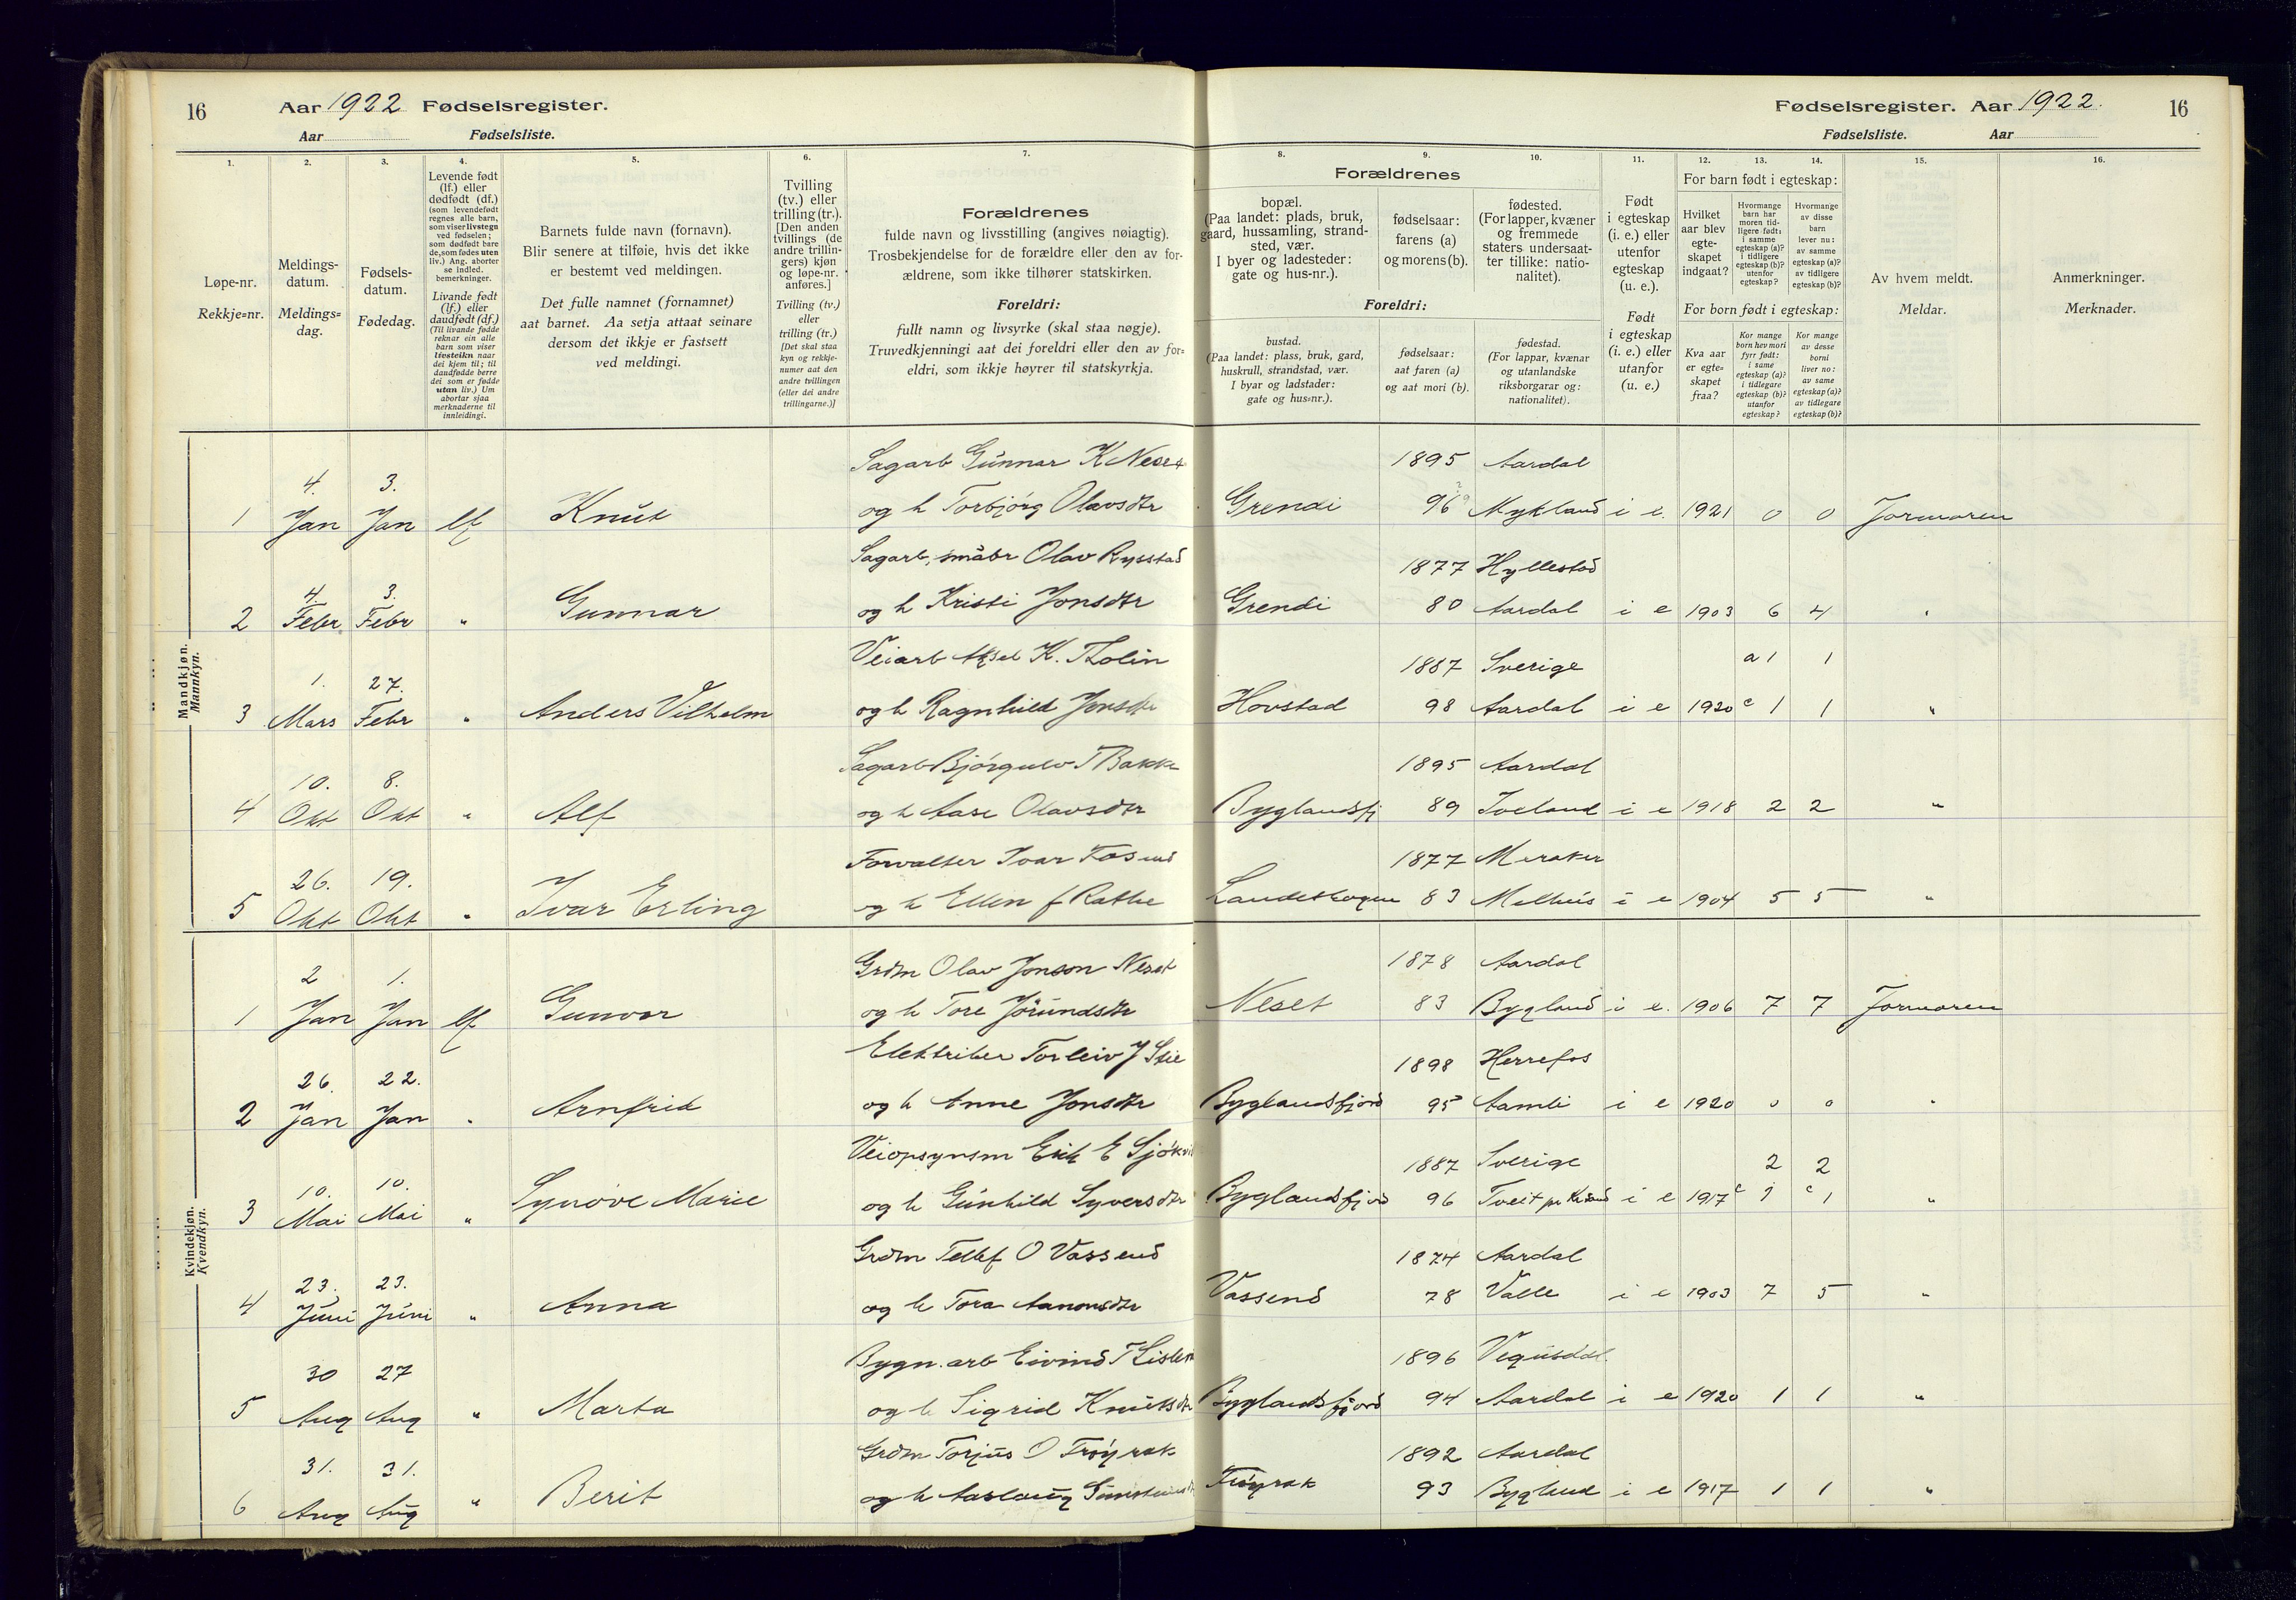 16 Aar 1922 Fødselsregister.
Aar Fødselsliste.
Fødselsregister. Aar 1922. 16
Fødselsliste. Aar
1.
Løpe-nr.
Rekkje=nr.
2.
Meldings-
datum.
Meldings=
dag.
3.
Fødsels-
datum.
Fødedag.
4.
Levende født
(lf.) eller
dødfødt (df.)
(som levendefødt
regnes alle barn,
som viser livstegn
ved fødselen;
som dødfødt bare
de, som fødes uten
liv.) Ang. aborter
se indled.
bemerkninger.
Livande født
(lf.) eller
daudfødt (df.)
(Til livande fødde
reknar ein alle
barn som viser
livsteikn naar
dei kjem til; til
daudfødde berre
dei som er fødde
utan liv.) Um
abortar sjaa
merknaderne til
innleidingi.
5.
Barnets fulde navn (fornavn).
Blir senere at tilføie, hvis det ikke
er bestemt ved meldingen.
Det fulle namnet (fornamnet)
aat barnet. Aa setja attaat seinare
dersom det ikkje er fastsett
ved meldingi.
6.
Tvilling
(tv.) eller
trilling (tr.).
[Den anden
tvillings (de
andre trillin-
gers) kjøn
og løpe-nr.
anføres.]
Tvilling (tv.)
eller
trilling (tr.)
[Det skal staa
kyn og rekkje-
numer aat den
andre tvillingen
(eller dei andre
trillingarne.)]
7.
Forældrenes
fulde navn og livsstilling (angives nøiagtig).
Trosbekjendelse for de forældre eller den av for-
ældrene, som ikke tilhører statskirken.
Foreldri:
fullt namn og livsyrke (skal staa nøgje).
Truvedkjenningi aat dei foreldri eller den av for=
eldri, som ikkje høyrer til statskyrkja.
Forældrenes
8.
bopæl.
(Paa landet: plads, bruk,
gaard, hussamling, strand-
sted, vær.
I byer og ladesteder:
gate og hus-nr.).
9.
fødselsaar:
farens (a)
og morens (b).
10.
fødested.
(For lapper, kvæner
og fremmede
staters undersaat-
ter tillike: natio-
nalitet).
Foreldri:
bustad.
(Paa landet: plass, bruk, gard,
huskrull, strandstad, vær.
I byar og ladstader:
gate og hus=nr.).
fødselsaar:
aat faren (a)
og aat mori (b).
fødestad.
(For lappar, kvænar
og utanlandske
riksborgarar og:
nationalitet).
11.
Født
i egteskap
(i. e.) eller
utenfor
egteskap
(u. e.).
Født
i egteskap
(i. e.) eller
utanfor
(u. e.)
12. 13. 14.
For barn født i egteskap:
Hvilket
aar blev
egte-
skapet
indgaat?
Hvormange
barn har
moren tid-
ligere født:
i samme
egteskap (a)?
i tidligere
egteskap (b)?
utenfor
egteskap?
Hvormange
av disse
barn
lever nu:
av samme
egteskap (a)?
av tidligere
egteskap (b)?
For born født i egteskap:
Kva aar
er egte=
skapet
fraa?
Kor mange
born hev mori
fyrr født:
i same
egteskap (a)?
i tidlegare
egteskap (b)?
utanfor
egteskap?
Kor mange
av desse
borni
liver no:
av same
egteskap (a)?
av tidlegare
egteskap (b)?
15.
Av hvem meldt.
Meldar.
16.
Anmerkninger.
Merknader.
Mandkjøn.
Mannkyn.
Sagarb Gunnar K Neset 1895 Aardal
1 4. Jan 3. Jan lf Knut og h Torbjörg Olavsdtr Grendi 96 Mykland i e. 1921 0 0 Jormoren
Sagarb, småbr Olav Rysstad 1877 Hyllestad
2 4. Febr 3. Febr " Gunnar og h Kristi Jonsdtr Grendi 80 Aardal i e 1903 6 4 "
Veiarb Aksel K. Tholin 1887 Sverige a 1 1
3 1. Mars 27. Febr " Anders Vilhelm og h Ragnhild Jonsdtr Hovstad 98 Aardal i e 1920 c 1 1 "
Sagarb Björgulv T Bakke 1895 Aardal
4 10. Okt 8. Okt " Alf og h Aase Olavsdtr Byglandsfj 89 Iveland i e 1918 2 2 "
Forvalter Ivar 1877 Meraker
5 26. Okt 19. Okt " Ivar Erling og h Ellen f Rathe Landeskogen 83 Melhus i e 1904 5 5 "
Kvindekjøn.
Kvendkyn.
Grdm Olav Jonson Neset 1878 Aardal
1 2 Jan 1. Jan lf Gunvor og h Tore Jörundsdtr Neset 83 Bygland i e. 1906 7 7 Jormoren
Elektriker Torleiv J Stie 1898 Herrefos
2 26. Jan 22. Jan " Arnfrid og h Anne Jonsdtr Byglandsfjord 95 Aamli i e 1920 0 0 "
Veiopsynsm Erik E 1887 Sverige 2 2
3 10. Mai 10. Mai " Synöve Marie og h Gunhild Syversdtr Byglandsfjord 96 Tveit pr Krsand i e 1917 c 1 c 1 "
Grdm Tellef O Vassend 1874 Aardal
4 23. Juni 23. Juni " Anna og h Tora Aanonsdtr Vassend 78 Valle i e 1903 7 5 "
Bygn.arb Eivind T 1896 Vegusdal.
5 30 Aug 27 Aug " Marta og h Sigrid Knutsdtr Byglandsfjord 94 Aardal i e 1920 1 1 "
Grdm Torjus O Fröyrak 1892 Aardal
6 31. Aug 31. Aug " Berit og h Aaslaug Fröyrak 93 Bygland i e 1917 1 1 "